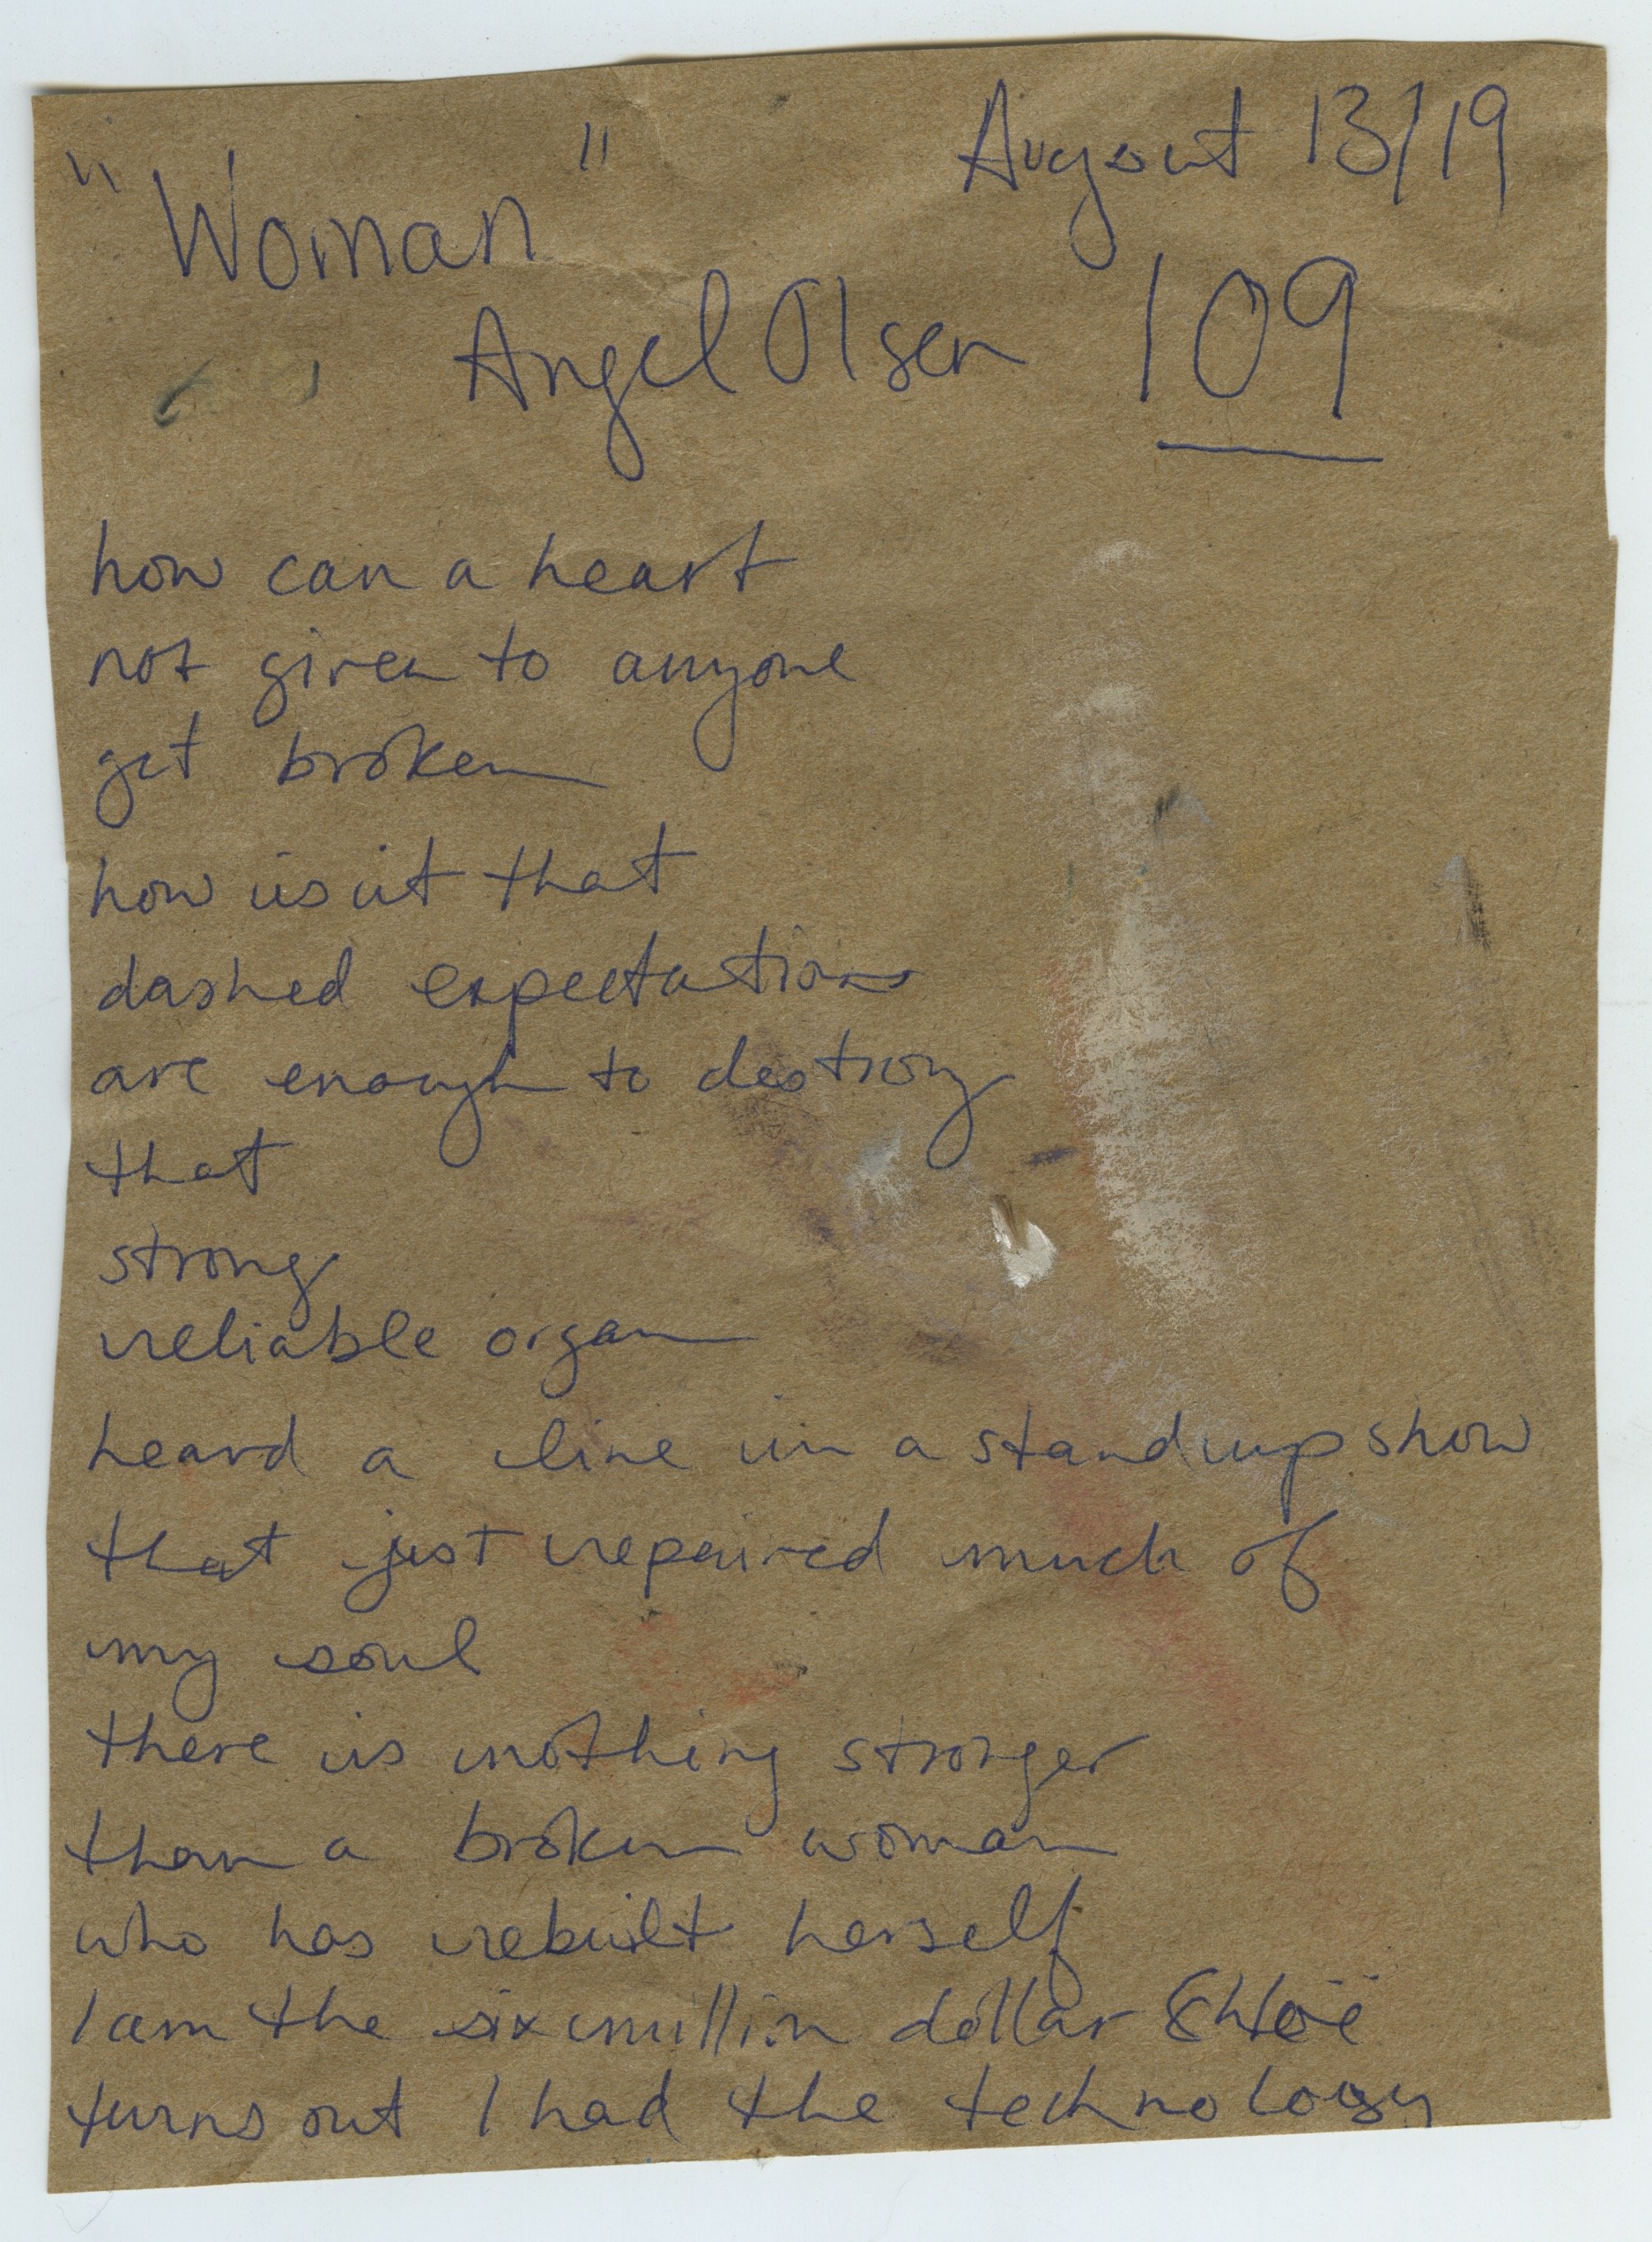 "Woman"
August 13/19
Angel Olsen
109
how can a heart
not given to anyone
get broken
how is it that
dashed expectations
are enough to destroy
that
strong
reliable organ
heard a line in a standup show
that just repaired much of
my soul
there is nothing stronger
than a broken woman
who has rebuilt herself
I am the six million dollar Chloë
turns out I had the technology